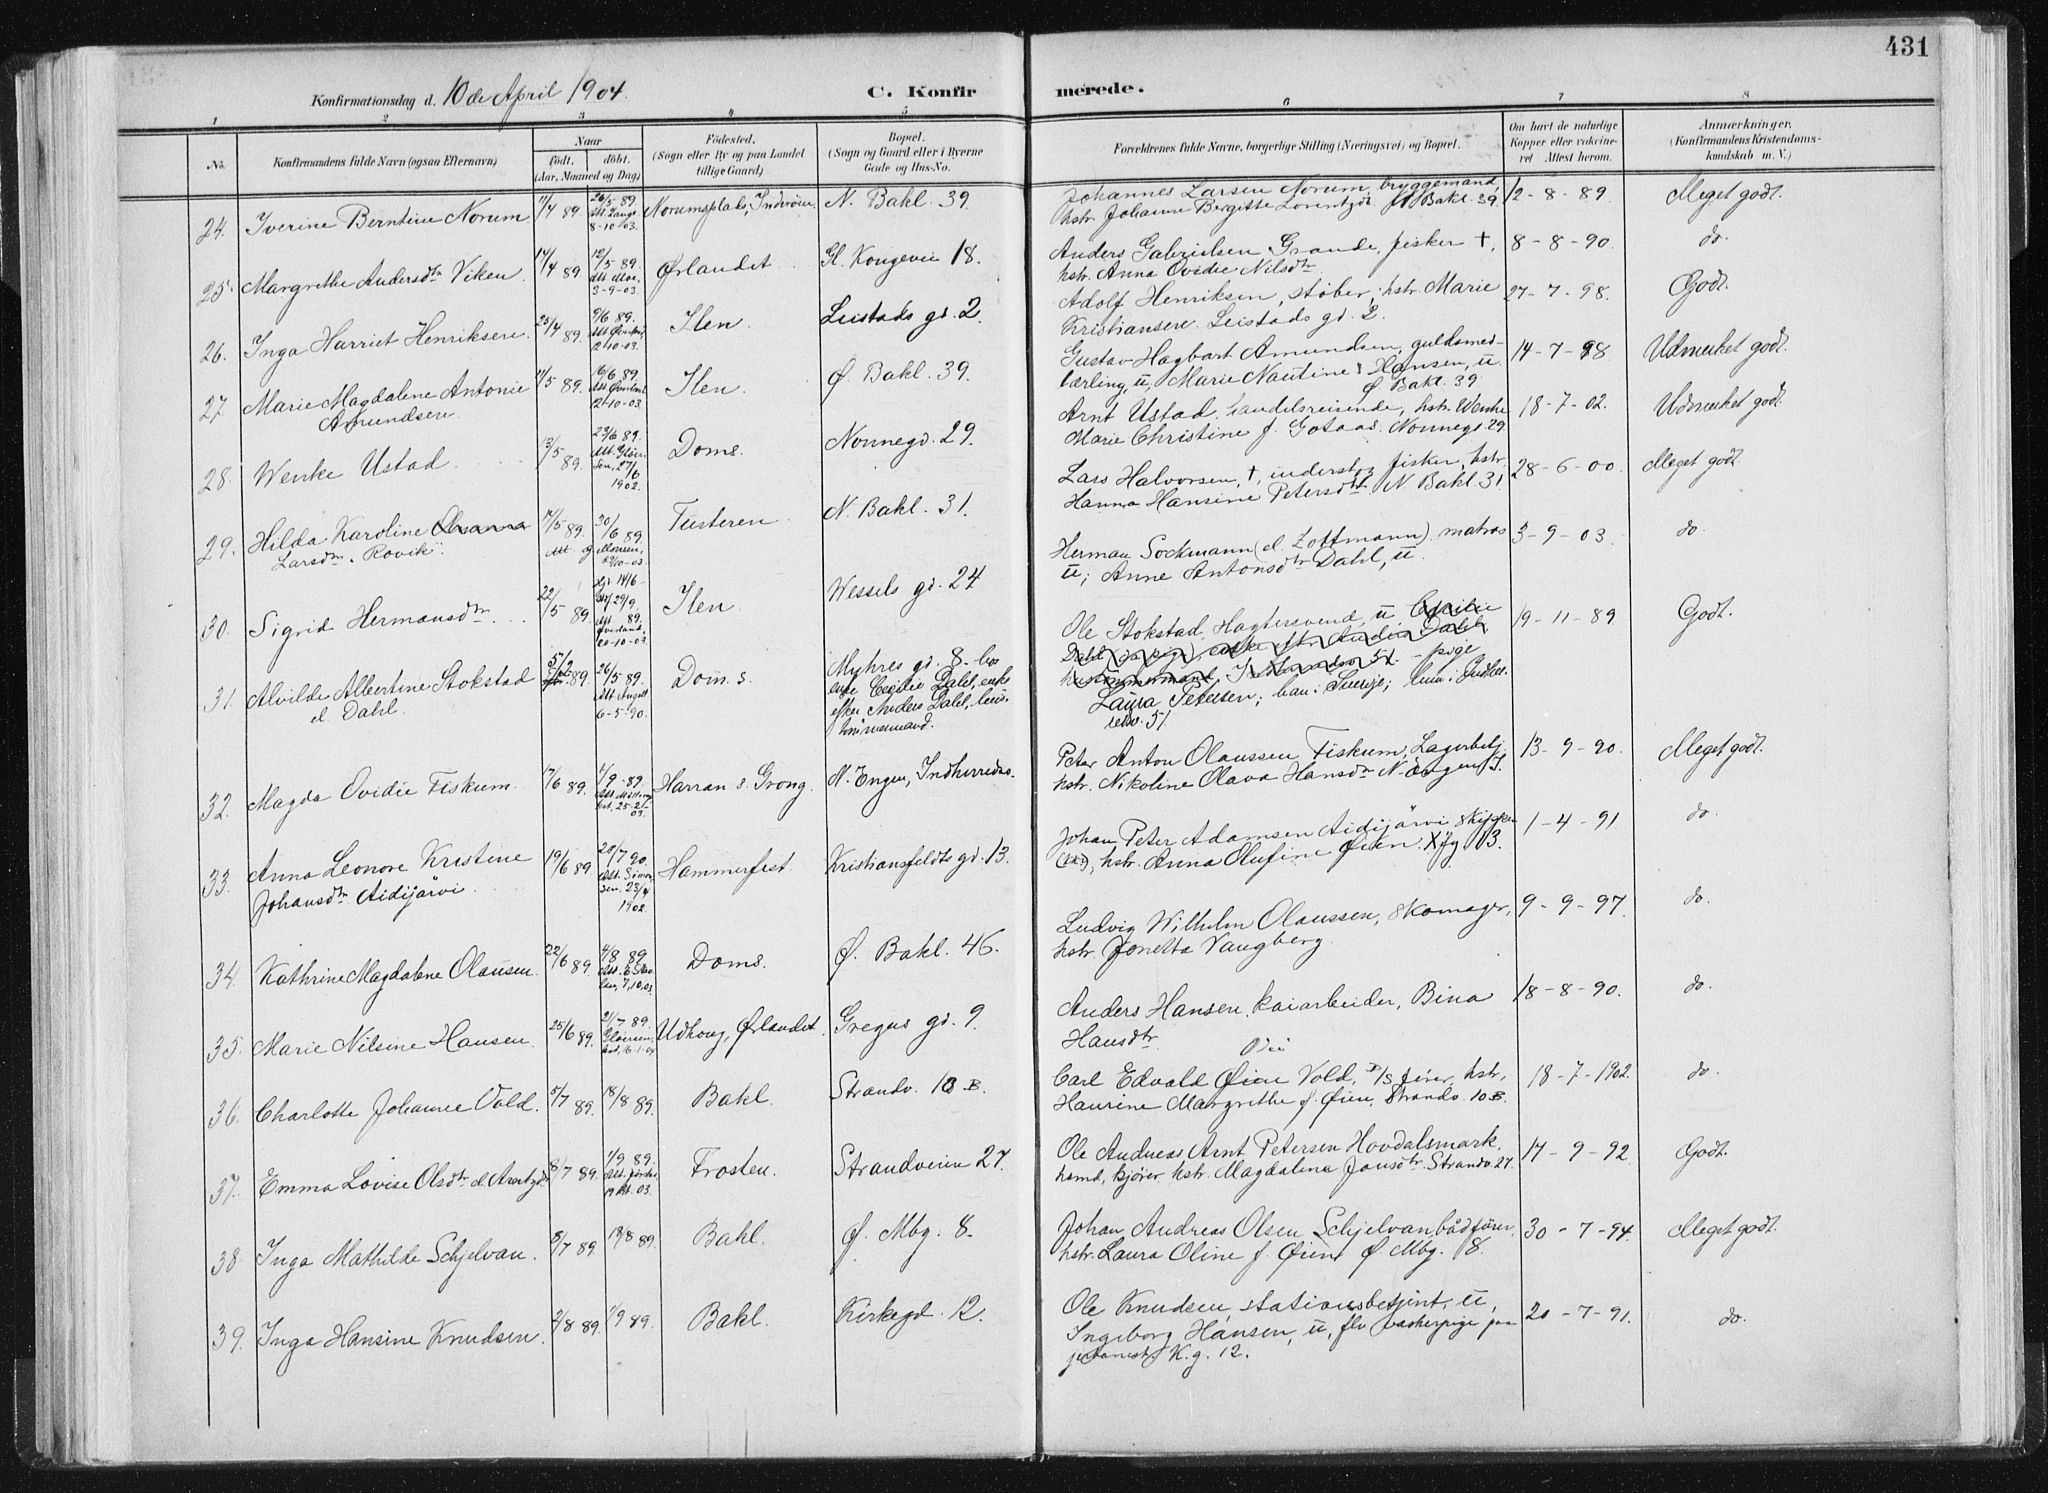 431
Konfirmationsdag d. 10de April 1904.
C. Konfirmerede.
1 2 3 4 5 6 7 8
No.
Konfirmandens fulde Navn (ogsaa Efternavn)
Naar
født. døbt.
(Aar, Maaned og Dag)
Fødested.
(Sogn eller By og paa Landet
tillige Gaard)
Bopæl.
(Sogn og Gaard eller i Byerne
Gade og Hus-No.
Forældrenes fulde Navne, borgerlige Stilling (Næringsvei) og Bopæl.
Om havt de naturlige
Kopper eller vaccineret
Attest herom.
Anmærkninger.
(Konfirmandens Kristendomskundskab
m. V.)
24. Iverine Berntine Norum 11/4 89 26/5 89. Att. Lange 8-10-03. Norumsplads, Inderøen N. Bakl. 39. Johannes Larsen Norum, bryggemand, 12-8-89 Meget godt.
hstr. Johanne Bergitte Lorentzdr. N. Bakl. 39
25. Margrethe Andersdtr Viken 14/4 89 12/5 89. Att. Moe, 3-9-03. Ørlandet Gl. Kongevei 18. Anders Gabrielsen Grande, fisker †, 8-8-90. do.
hstr. Anna Ovidie Nilsdtr
26. Inga Harriet Henriksen 25/4 89 9/6 89. 12-10-03. Ilen. Leistads gd. 2 Adolf Henriksen, støber, hstr. Marie 27-7-98. Godt.
Kristiansen. Leistads gd. 2.
27. Marie Magdalene Antonie 11/5 89. 16/6 89. 12-10-03. Ilen. Ø. Bakl. 39. Gustav Hagbart Amundsen, guldsmed- 14-7-98 Udmerket godt.
Amundsen. lærling, u, Marie Nautine Hansen, u.
Ø Bakl. 39
28. Wenke Ustad 13/5 89. 23/6 89. 27/6 1902. Doms. Nonnegd. 29. Arnt Ustad, handelsreisende, hstr. Wenke 18-7-02. Udmerket godt.
Marie Christine f. Gotaas. Nonnegd. 29
29. Hilda Karoline 17/5 89. 30/6 89. Tusteren N. Bakl. 31. Lars Halvorsen, †, inderst og fisker, hstr. 28-6-00. Meget godt
Larsdtr. Rovik. Hanna Hansine Petersdtr. N. Bakl 31
30. Sigrid Hermansdtr. 22/5 89. 20-10-03. Ilen Wessels gd. 24 Herman Sockmann (el. Zottmann) matros 3-9-03. do
u; Anne Antonsdtr Dahl, u.
31. Alvilde Albertine Stokstad 89. 26/5 89. 6-5-90. Doms. Myhres gd. 8. hos Ole Stokstad, u, 19-11-89 Godt.
el. Dahl. enke Cecilie Dahl, enke
efter Anders Dahl,
tømmermand. Laura Petersen; han i Sverige;
32. Magda Ovidie Fiskum. 7/6 89. 1/9-89. Harran s. Grong. N. Engen, Indherredsv. Peter Anton Olaussen Fiskum, Lagerbetj. 13-9-90. Meget godt.
hstr. Nikoline Olava Hansdtr N. Engen
33. Anna Leonore Kristine 19/6 89. 20/7 90. 1902. Hammerfest. Kristiansfeldts gd. 13. Johan Peter Adamsen Aidijärvi skipper 1-4-91 do.
Johansdtr. Aidijärvi hstr. Anna Olufine Øien. Kfg. 13.
34. Kathrine Magdalene Olausen. 22/6 89. 4/8 89. Doms. Ø. Bakl. 46. Ludvig Wilhelm Olaussen, skomager, 9-9-97. do.
hstr. Jonetta Vangberg.
35. Marie Nilsine Hansen. 25/6 89. 21/7 89. Udhaug, Ørlandet. Gregus gd. 9. Anders Hansen, kaiarbeider, Bina 18-8-90. do.
Hansdtr.
36. Charlotte Johanne Vold. 5/7 89. 18/8 89. Bakl. Strandv. 10 B. Carl Edvald Øien Vold, D/S fører, hstr. 18-7-1902. do.
Margrethe f. Øien, Strandv. 10 B.
37. Emma Lovise Olsdtr el. 8/7 89. 1/9 89. Frosten. Strandveien 27. Ole Andreas Arnt Petersen Hovdalsmark 17-9-92. Godt.
kjører, hstr. Magdalena Jonsdtr. Strandv. 27.
38. Inga Mathilde Schjelvan. 8/7 89. 18/8 89. Bakl. Ø. Mbg. 8. Johan Andreas Olsen Schjelvan bådfører, 30-7-94. Meget godt.
hstr. Laura Oline f. Øien Ø Mbg. 8.
39. Inga Hansine Knudsen. 2/8 89. 1/9 89. Bakl. Kirkegd. 12. Ole Knudsen, stationsbetjent, u, 20-7-91. do.
Ingeborg Hansen, u, vaskerpige paa
K.g. 12.